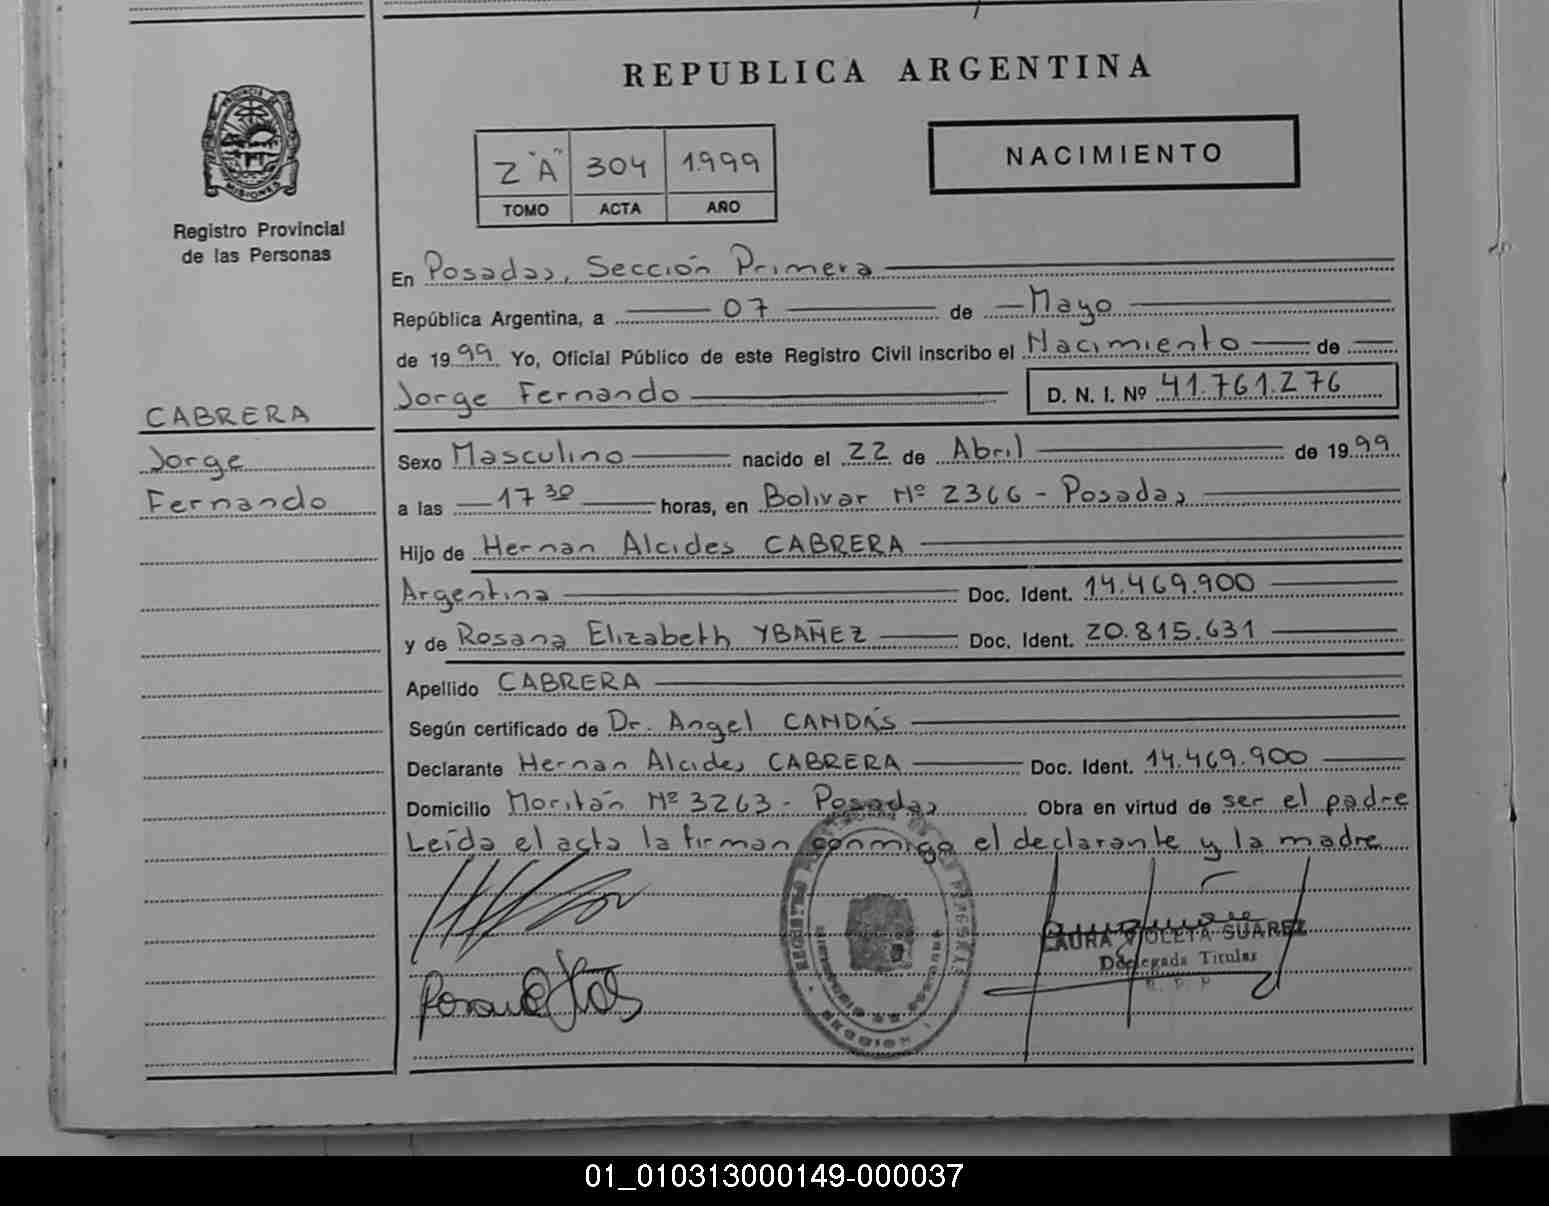 REPUBLICA ARGENTINA
PROVINCIA DE MISIONES
Registro Provincial
de las Personas
2 "A" 304 1.999
TOMO ACTA AÑO
NACIMIENTO
En Posadas, Sección Primera
República Argentina, a 07 de Mayo
de 1999 Yo, Oficial Público de este Registro Civil inscribo el Nacimiento de
Jorge Fernando D. N. I. Nº 41.761.276
CABRERA
Jorge
Fernando
Sexo Masculino nacido el 22 de Abril de 1999
a las 17 30 horas, en Bolivar Nº 2366 - Posadas
Hijo de Hernan Alcides CABRERA
Argentina Doc. Ident. 14.469.900
y de Rosana Elizabeth YBAÑEZ Doc. Ident. 20.815.631
Apellido CABRERA
Según certificado de Dr. Angel CANDÁS
Declarante Hernan Alcides CABRERA Doc. Ident. 14.469.900
Domicilio Nº 3263 - Posadas Obra en virtud de ser el padre
Leída el acta la firman conmigo el declarante y la madre
LAURA VIOLETA SUAREZ
Delegada Titular
R. P. P.
01_010313000149-000037